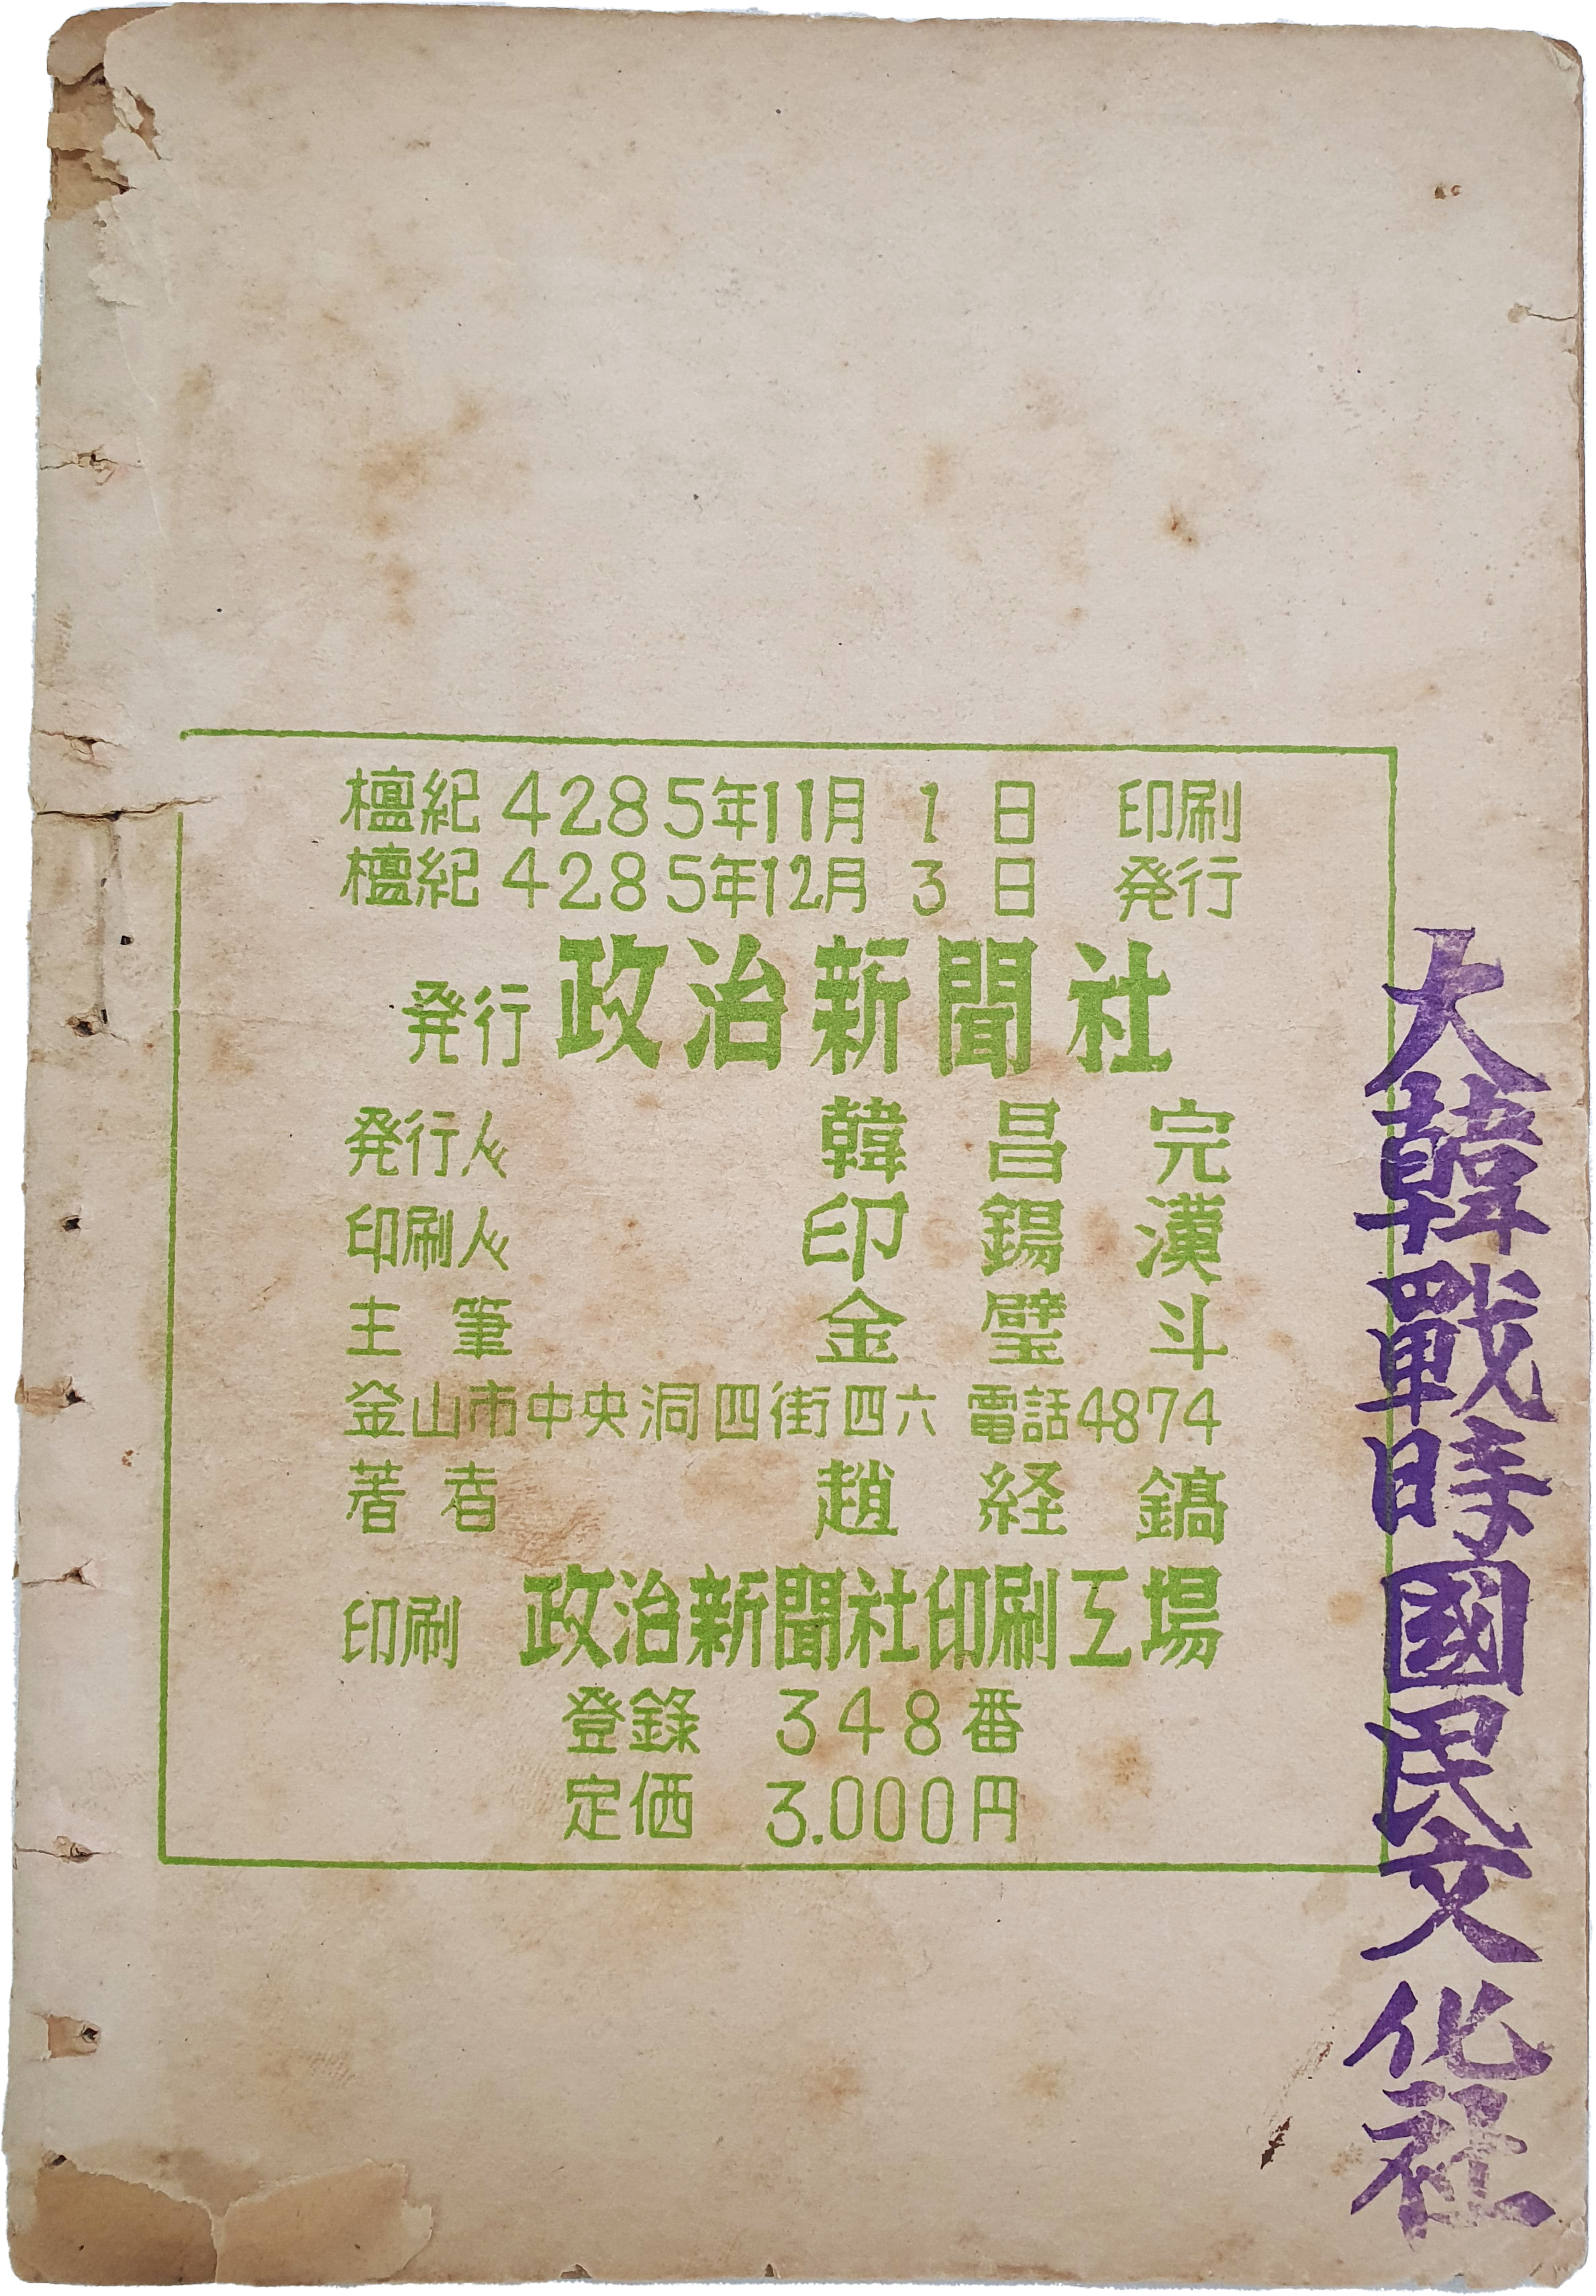 檀紀 4285年11月 1 日 印刷
檀紀 4285年12月 3 日 発行
発行 政治新聞社
発行人 韓昌完
印刷人 印錫漢
主筆 金璧斗
釜山市中央洞四街四六 電話4874
著者 趙経鎬
印刷 政治新聞社印刷工場
登錄 348番
定価 3.000円
大韓戰時國民文化社